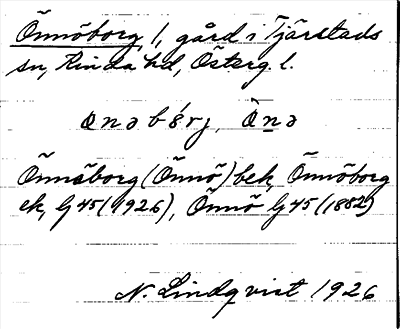 Önnöborg, l, gård i Tjärstads
sn, Kinda hd, Österg. l.
ǫnəbórj, Ònə
Önnöborg (Önnö) bek, Önnöborg
ek, bj 45 (1926), Önnö bj 45 (1882)
N. Lindqvist 1926